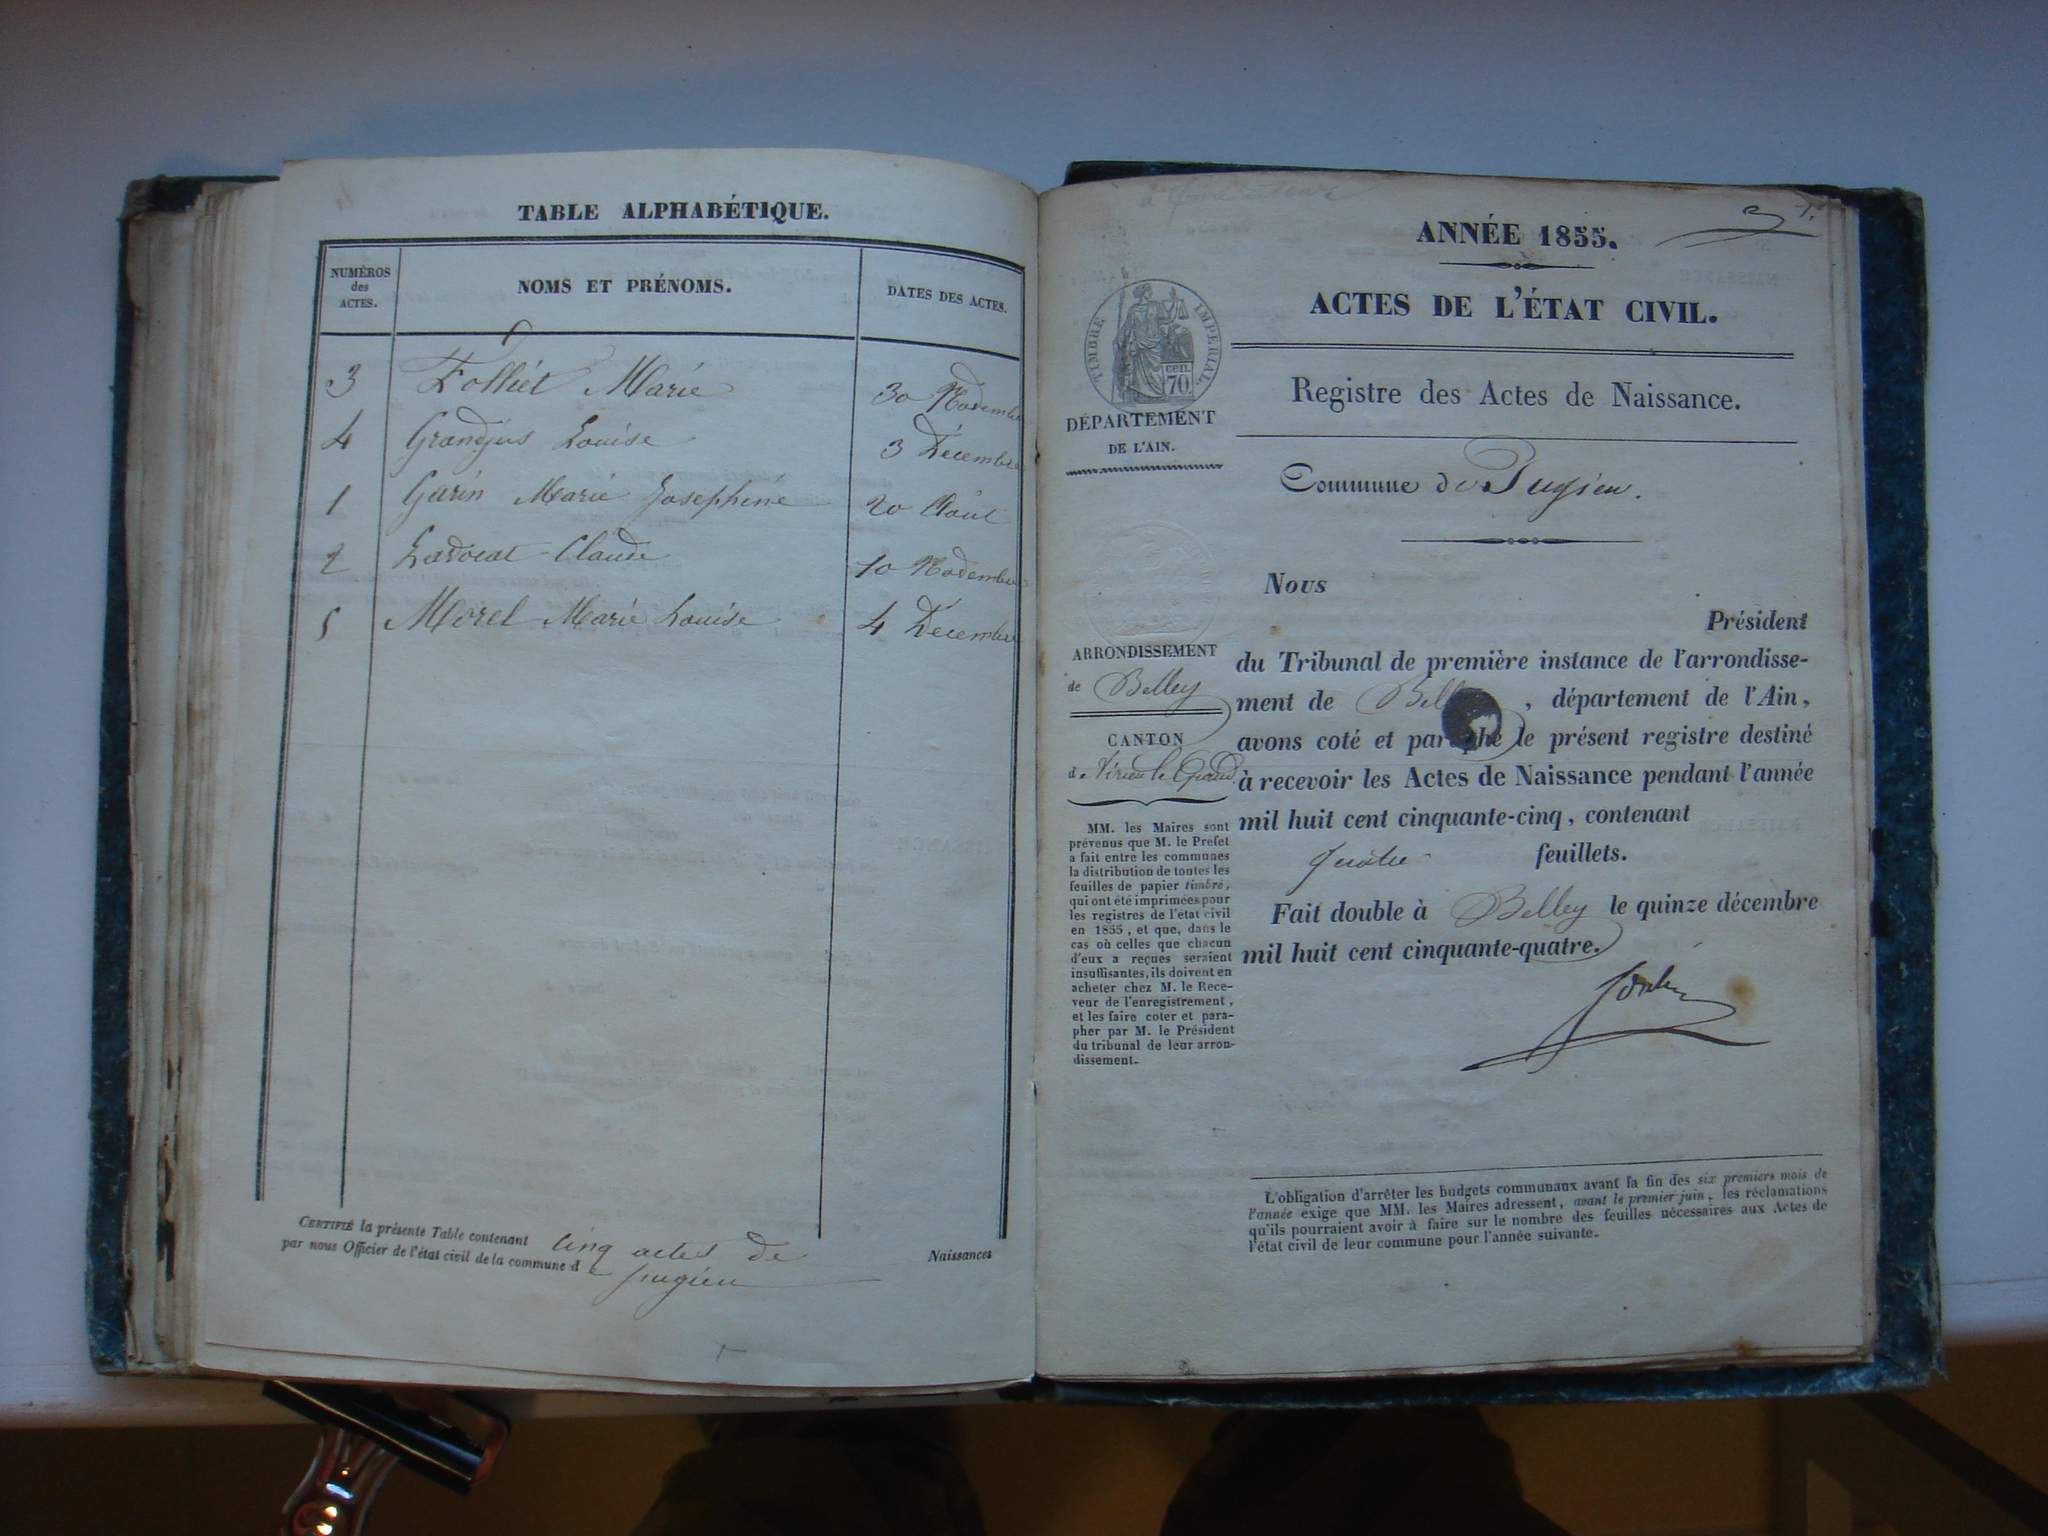 TABLE ALPHABÉTIQUE.
NUMÉROS
des
ACTES.
NOMS ET PRÉNOMS.
DATES DES ACTES.
3 Folliet Marie 30 Novembre
4 Grandjus Louise 3 Décembre
1 Garin Marie Josephine 20 Août
2 Lavocat Claude 10 Novembre
5 Morel Marie Louise 4 Décembre
CERTIFIÉ la présente Table contenant cinq actes de Naissances
par nous Officier de l'état civil de la commune de Pugieu
ANNÉE 1855.
ACTES DE L'ÉTAT CIVIL.
TIMBRE IMPERIAL.
cen.
70
Registre des Actes de Naissance.
DÉPARTEMENT
DE L'AIN.
Commune de Pugieu.
Nous
Président
du Tribunal de première instance de l'arrondisse-
ment de Belley, département de l'Ain,
avons coté et paraphé le présent registre destiné
à recevoir les Actes de Naissance pendant l'année
mil huit cent cinquante-cinq, contenant
quatre feuillets.
Fait double à Belley le quinze décembre
mil huit cent cinquante-quatre.
ARRONDISSEMENT
de Belley
CANTON
de Virieu le Grand
MM. les Maires sont
prévenus que M. le Prefet
a fait entre les communes
la distribution de toutes les
feuilles de papier timbré,
qui ont été imprimées pour
les registres de l'état civil
en 1855, et que, dans le
cas où celles que chacun
d'eux a reçues seraient
insuffisantes, ils doivent en
acheter chez M. le Rece-
veur de l'enregistrement,
et les faire coter et para-
pher par M. le Président
du tribunal de leur arron-
dissement.
L'obligation d'arrêter les budgets communaux avant la fin des six premiers mois de
l'année exige que MM. les Maires adressent, avant le premier juin, les réclamations
qu'ils pourraient avoir à faire sur le nombre des feuilles nécessaires aux Actes de
l'état civil de leur commune pour l'année suivante.